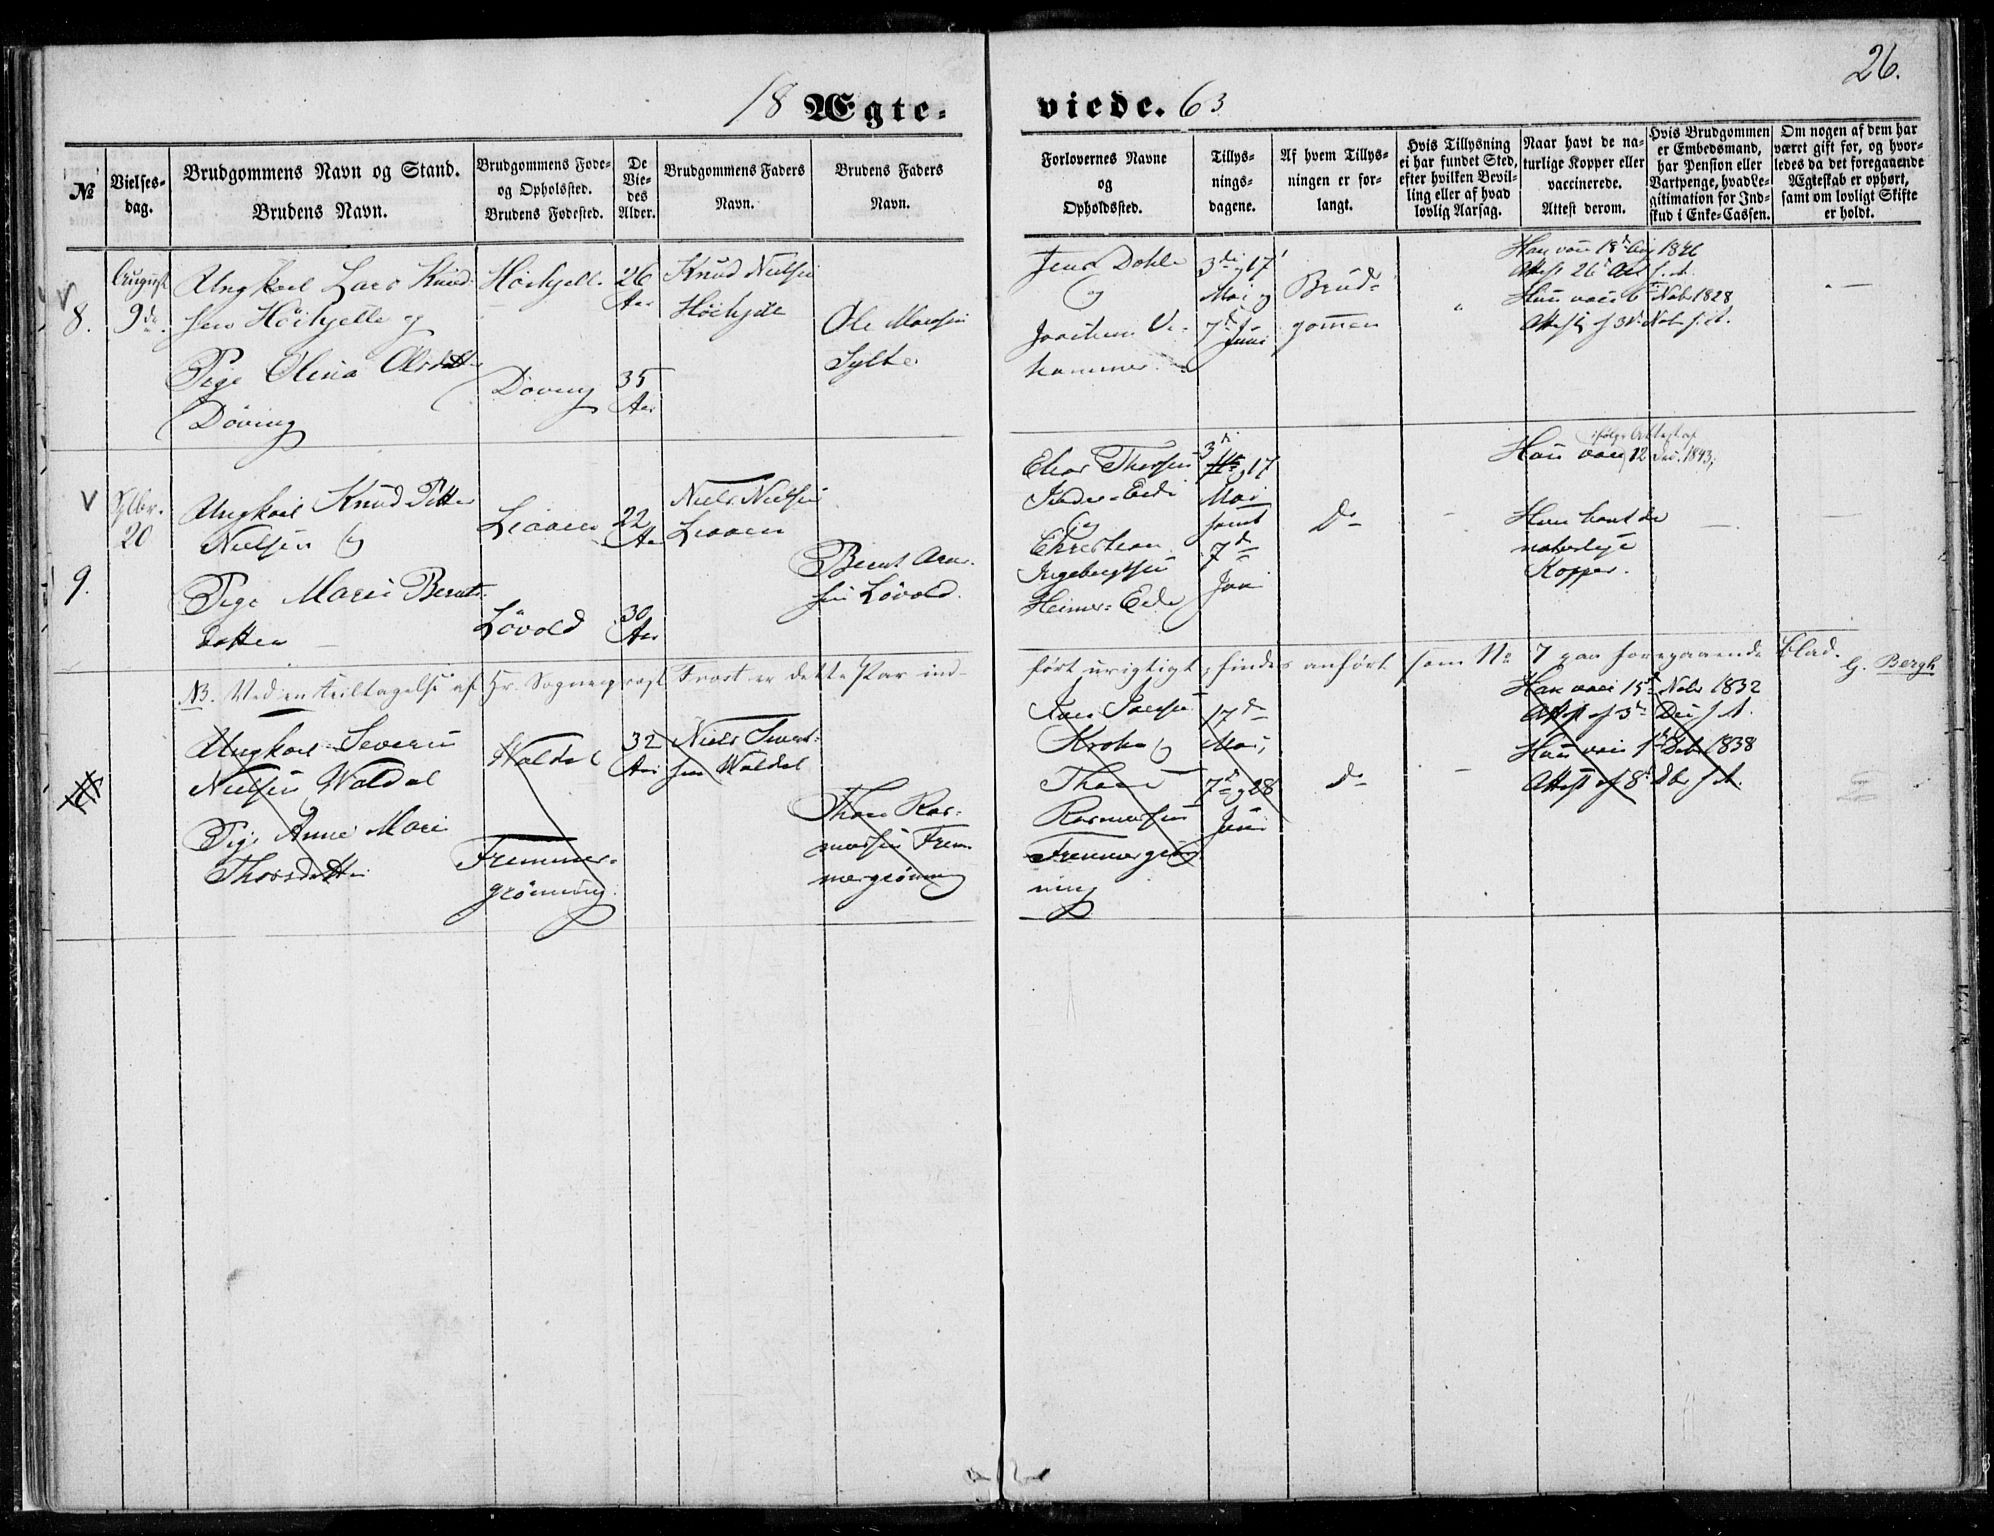 26.
18 Ægte-
viede. 63
№
Vielses-
dag.
Brudgommens Navn og Stand.
Brudens Navn.
Brudgommens Føde-
og Opholsted.
Brudens Fødested.
De
Vie-
des
Alder.
Brudgommens Faders
Navn.
Brudens Faders
Navn.
Forlovernes Navne
og
Opholdssted.
Tillys-
nings-
dagene.
Af hvem Tillys-
ningen er for-
langt.
Hvis Tillysning
ei har fundet Sted,
efter hvilken Bevil-
ling eller af hvad
lovlig Aarsag.
Naar havt de na-
turlige Kopper eller
vaccinerede.
Attest derom.
Hvis Brudgommen
er Embedsmand,
har Pension eller
Vartpenge, hvad Le-
gitimation for Ind-
skud i Enke-Cassen.
Om nogen af dem har
været gift for, og hvor-
ledes da det foregaaende
Ægteskab er ophørt,
samt om lovligt Skifte
er holdt.
V
8.
August
9de
Ungkarl Lars Knud-
sen Höihjelle og
Pige Olina Olsdtt
Döving
Höihjelle
Döving
26
Aar
35
Aar
Knud Nielsen
Höihjelle
Ole
Sylte
Jens Dahle
og
Joachim Ve-
hammer
3di 17
Mai og
7de Juni
Brud-
gomen
Han vacc 18de Aug 1846
Attest 26 s. A.
Hun vacc 6te Nobr 1828
Attest af 3de Nobr s. A.
V
9.
20
Ungkarl Knud Petter
Nielsen og
Pige Marie Bernts-
datter
Liaaen
Lövold
22
Aar
30
Aar
Niels Nielsen
Liaaen
Bernt
sen Lövold.
Thorsen
Eide
og
Christian
Ingebrigtsen
Heimer-Eide
3di
17
Mai
samt
7de
Juni
Do
ifølge Attest af
Han vacc 12 Dec. 1843,
Hun havt de
naturlige
Kopper.
NB. Ved en Feiltagelse af Hr. Sogneprest Frost er dette Par ind-
ført urigtigt, findes anført som No 7 paa foregaaende Blad.
G. Bergh
Ungkarl Severin
Nielsen Waldal
Pige Anne Marie
Thorsdatter
Waldal
Fremmer-
grönning
32
Aar
Niels Sivert-
sen Waldal
Thore Ras-
mussen Frem-
mergrönning
Krohn og
Thore
Rasmussen
Fremmergrön-
ning
17de
Mai,
7de og 28
Juni
Do
Han vacc 15de Nobr 1832
Attest af 3de Dec s. A.
Hun vacc 1838
Attest af 8de Dbr s. A.